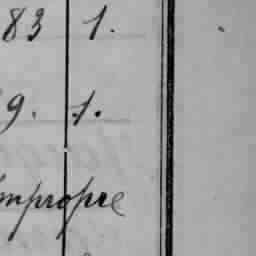 83 1.
9. 1.
impropre